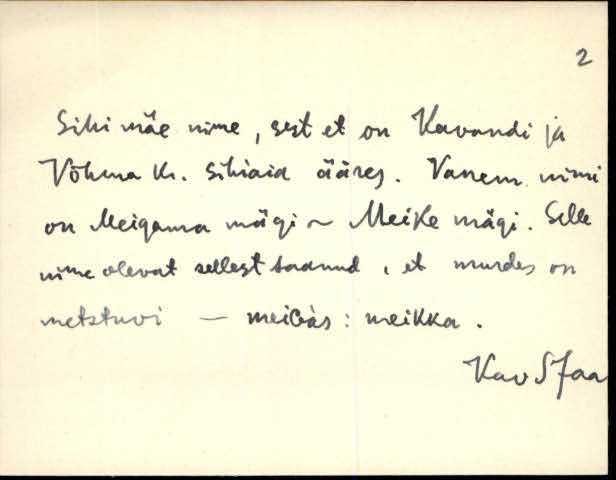 2
Sihi mäe nime, sest et on Kavandi ja
Võhma kr. sihiaid ääres. Vanem nimi
on Meigama mägi ~ Meike mägi. Selle
nime olevat sellest saanud, et murdes on
metstuvi — meiGàs : meikka.
Kav S Jaa